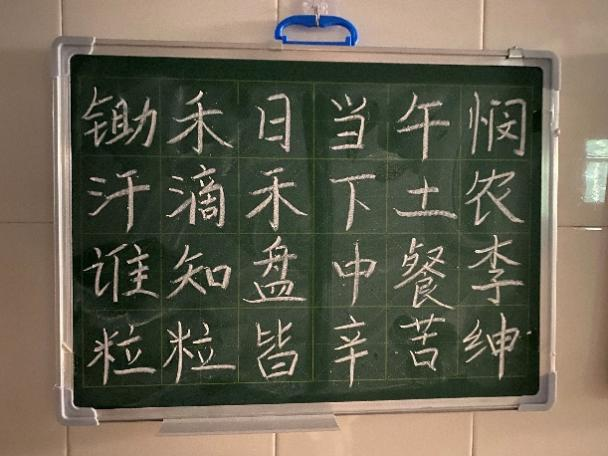 锄禾日当午悯
汗滴禾下土农
谁知盘中餐李
粒粒皆辛苦绅